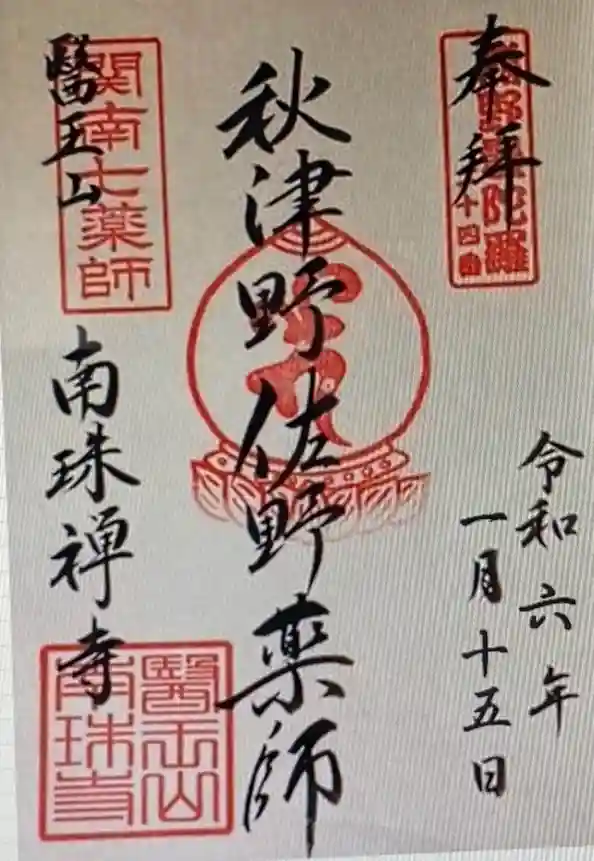 奉拜
熊野曼陀羅
十四番
令和六年
一月十五日
秋津野佐野薬師
醫王山
関南七薬師
南珠禅寺
醫王山
南珠寺